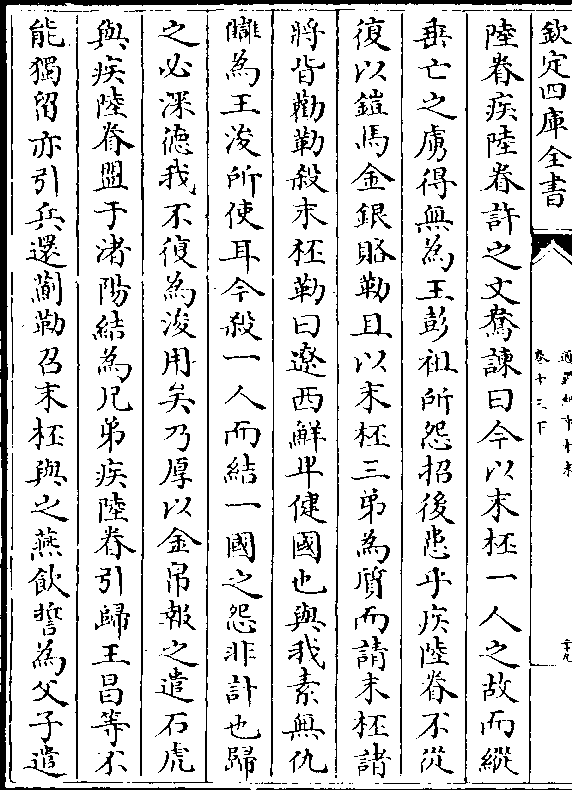 欽定四庫全書
卷十三下
陸眷疾陸眷許之文鴦諫曰今以末柸一人之故而縱
垂亡之虜得無為王彭祖所怨招後患乎疾陸眷不從
復以鎧馬金銀賂勒且以末柸三弟為質而請末柸諸
將皆勸勒殺末柸勒曰遼西鮮卑健國也與我素無仇
讎為王浚所使耳今殺一人而結一國之怨非計也歸
之必深德我不復為浚用矣乃厚以金帛報之遣石虎
與疾陸眷盟于渚陽結為兄弟疾陸眷引歸王昌等不
能獨留亦引兵還薊勒召末柸與之燕飲誓為父子遣